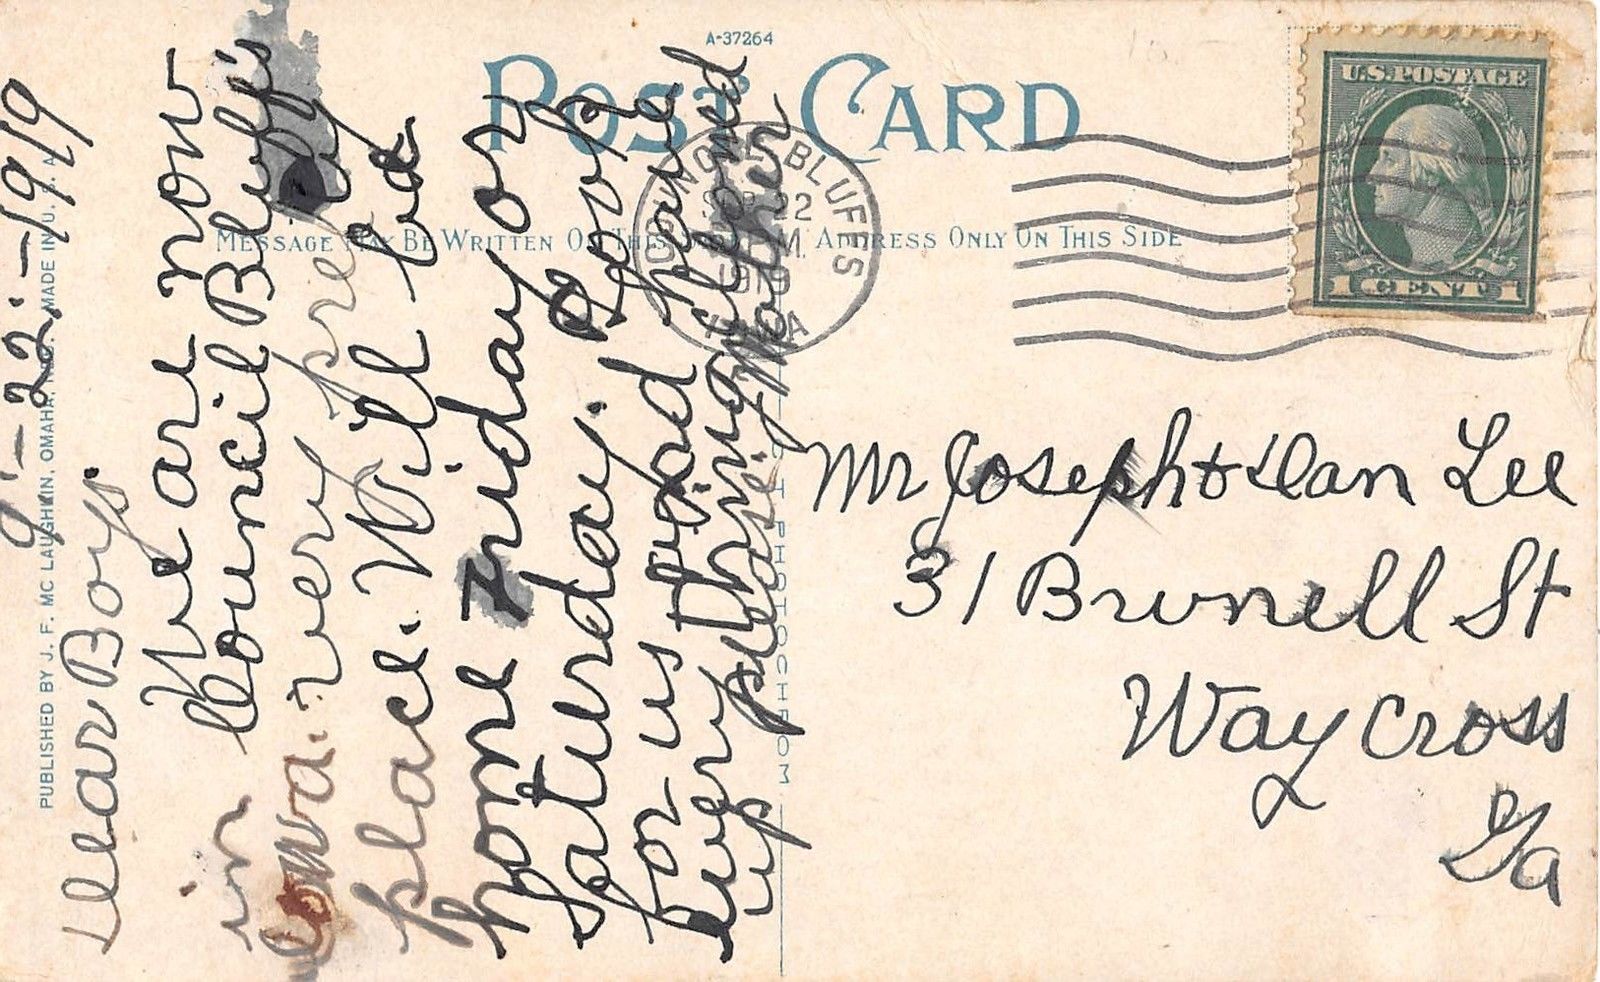 A-37264
POST CARD
MESSAGE MAY BE WRITTEN ON THIS SIDE
ADDRESS ONLY ON THIS SIDE
U.S. POSTAGE
1 CENT 1
COUNCIL BLUFFS
SEP 22
M
1919
IOWA
9-22-1919
Dear Boys.
We are now
in Council Bluffs
Iowa. very prety
place. Will be
home Friday or
Saturday. Look
for us and have
every thing cleaned
up pleasing Mother
Mr Joseph & Dan Lee
31 Brunell St
Way Cross
Ga
PUBLISHED BY J. F. MC LAUGHLIN, OMAHA, NEB. MADE IN U. S. A.
PHOTOCHROM